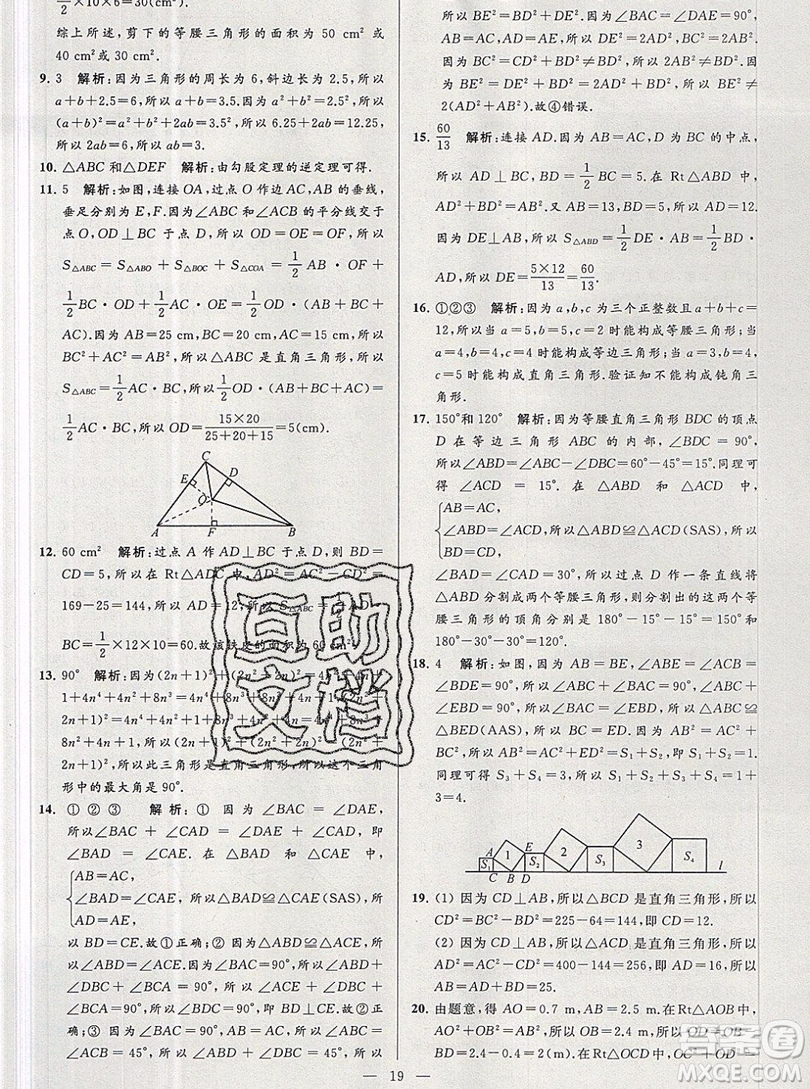 1/2×10×6=30(cm²).
综上所述,剪下的等腰三角形的面积为 50 cm² 或
40 cm² 或 30 cm².
9. 3 解析:因为三角形的周长为 6,斜边长为 2.5,所以
a+b+2.5=6,所以 a+b=3.5. 因为 a²+b²=2.5²,所以
(a+b)²=a²+b²+2ab=3.5²,所以 6.25+2ab=12.25,
所以 2ab=6,所以 ab=3.
10. △ABC 和△DEF 解析:由勾股定理的逆定理可得.
11. 5 解析:如图,连接 OA,过点 O 作边 AB,AC 的垂线,
垂足分别为 E,F. 因为∠ABC 和∠ACB 的平分线交于
点 O,OD⊥BC 于点 D,所以 OD=OE=OF,所以
S△ABC=S△ABO+S△BOC+S△COA=1/2 AB·OF+
1/2 BC·OD+1/2 AC·OE=1/2 OD·(AB+BC+
AC). 因为 AB=25 cm,BC=20 cm,AC=15 cm,所以
BC²+AC²=AB²,所以△ABC 是直角三角形,所以
S△ABC=1/2 AC·BC,所以 1/2 OD·(AB+BC+AC)=
1/2 AC·BC,所以 OD=15×20/(25+20+15)=5(cm).
C
E
D
O
A
F
B
12. 60 cm² 解析:过点 A 作 AD⊥BC 于点 D,则 BD=
CD=5,所以在 Rt△ADC 中,AD²=AC²-CD²=
169-25=144,所以 AD=12,所以 S△ABC=1/2 AD·
BC=1/2×12×10=60. 故该铁皮的面积为 60 cm².
13. 90° 解析:因为(2n+1)²+(2n²+2n)²=4n²+4n+
1+4n⁴+4n²+8n³=4n⁴+8n³+8n²+4n+1,(2n²+
2n+1)²=4n⁴+4n²+1+8n³+4n²+4n=4n⁴+8n³+
8n²+4n+1,所以(2n+1)²+(2n²+2n)²=(2n²+
2n+1)²,所以此三角形是直角三角形,所以这个三角
形中的最大角是 90°.
14. ① ② ③ 解析:① 因为∠BAC=∠DAE,
所以∠BAC+∠CAD=∠DAE+∠CAD,即
∠BAD=∠CAE. 在△ABD 和△ACE 中,
AB=AC,
∠BAD=∠CAE,所以△ABD≌△ACE(SAS),所
AD=AE,
以 BD=CE. 故①正确;②因为△ABD≌△ACE,所
以∠ABD=∠ACE. 因为∠ABD+∠DBC=
45°,所以∠ACE+∠DBC=45°,所以∠DBC+
∠DCB=∠DBC+∠ACE+∠ACB=90°,所以
BD⊥CE. 故②正确;③因为∠BAC=90°,AB=AC,所以∠ABC=
∠ACB=45°,所以∠ABD+∠DBC=45°. 因为
所以 BE²=BD²+DE². 因为∠BAC=∠DAE=90°,
AB=AC,AE=AD,所以 DE²=2AD²,BC²=2AB².
因为 BC²=BD²+CD²≠BD²,所以 2AB²≠BD²,所以
2(AD²+AB²). 故④错误.
15. 60/13 解析:连接 AD. 因为 AB=AC,D 为 BC 的中点,
所以 AD⊥BC,BD=1/2 BC=5. 在 Rt△ABD 中,
AD²+BD²=AB²,所以 AD²=13²-5²=12²,所以
AD=12. 又因为 S△ABD=1/2 BD·AD,S△ABD=1/2 DE·AB,所以 1/2 DE·AB=1/2 BD·
AD,所以 DE=5×12/13=60/13.
16. ①②③ 解析:因为 a,b,c 为三个正整数且 a+b+c=
12,所以当 a=5,b=5,c=2 时能构成等腰三角形;当
a=4,b=4,c=4 时能构成等边三角形;当 a=3,b=4,
c=5 时能构成直角三角形. 验证知不能构成钝角三
角形.
17. 150°和120° 解析:因为等腰直角三角形 BDC 的顶点
D 在等边三角形 ABC 的内部,∠BDC=90°,
所以∠ABD=∠ABC-∠DBC=60°-45°=15°. 同理可
得∠ACD=15°. 在△ABD 和△ACD 中,
AB=AC,
∠ABD=∠ACD,所以△ABD≌△ACD(SAS),所以
BD=CD,
∠BAD=∠CAD=30°,所以过点 D 作一条直线将
△ABD 分割成两个等腰三角形,所以分割出的这两
个等腰三角形的顶角分别是 180°-15°-15°=150°和
180°-30°-30°=120°.
18. 4 解析:如图,因为 AB=BE,∠ACB=∠ABE=
∠BDE=90°,所以∠ABC+∠BAC=90°,∠ABC+
∠EBD=90°,所以∠BAC=∠EBD,所以△ABC≌
△BED(AAS),所以 BC=ED. 因为 AB²=
AC²+BC²,所以 AB²=AC²+ED²=S₁+S₂,即 S₁+S₂=1.
同理可得 S₃+S₄=3,所以 S₁+S₂+S₃+S₄=1
+3=4.
A E
S₁ 1 S₂ 2 S₃ 3 S₄ l
C B D
19. (1) 因为 CD⊥AB,所以△BCD 是直角三角形,所以
CD²=BC²-BD²=225-64=144,所以 CD=12.
(2) 因为 CD⊥AB,所以△ACD 是直角三角形,所以
AD²=AC²-CD²=400-144=256,所以 AD=16,所以
AB=AD+BD=25.
20. 由题意,得 AO=0.7 m,AB=2.5 m,在 Rt△AOB 中,
AO²+OB²=AB²,所以 OB=2.4 m,所以 OD=OB-
BD=2.4-0.4=2(m). 在 Rt△OCD 中,OC²+OD²=
— 19 —
互助
文档
答案圈
MXQE.COM